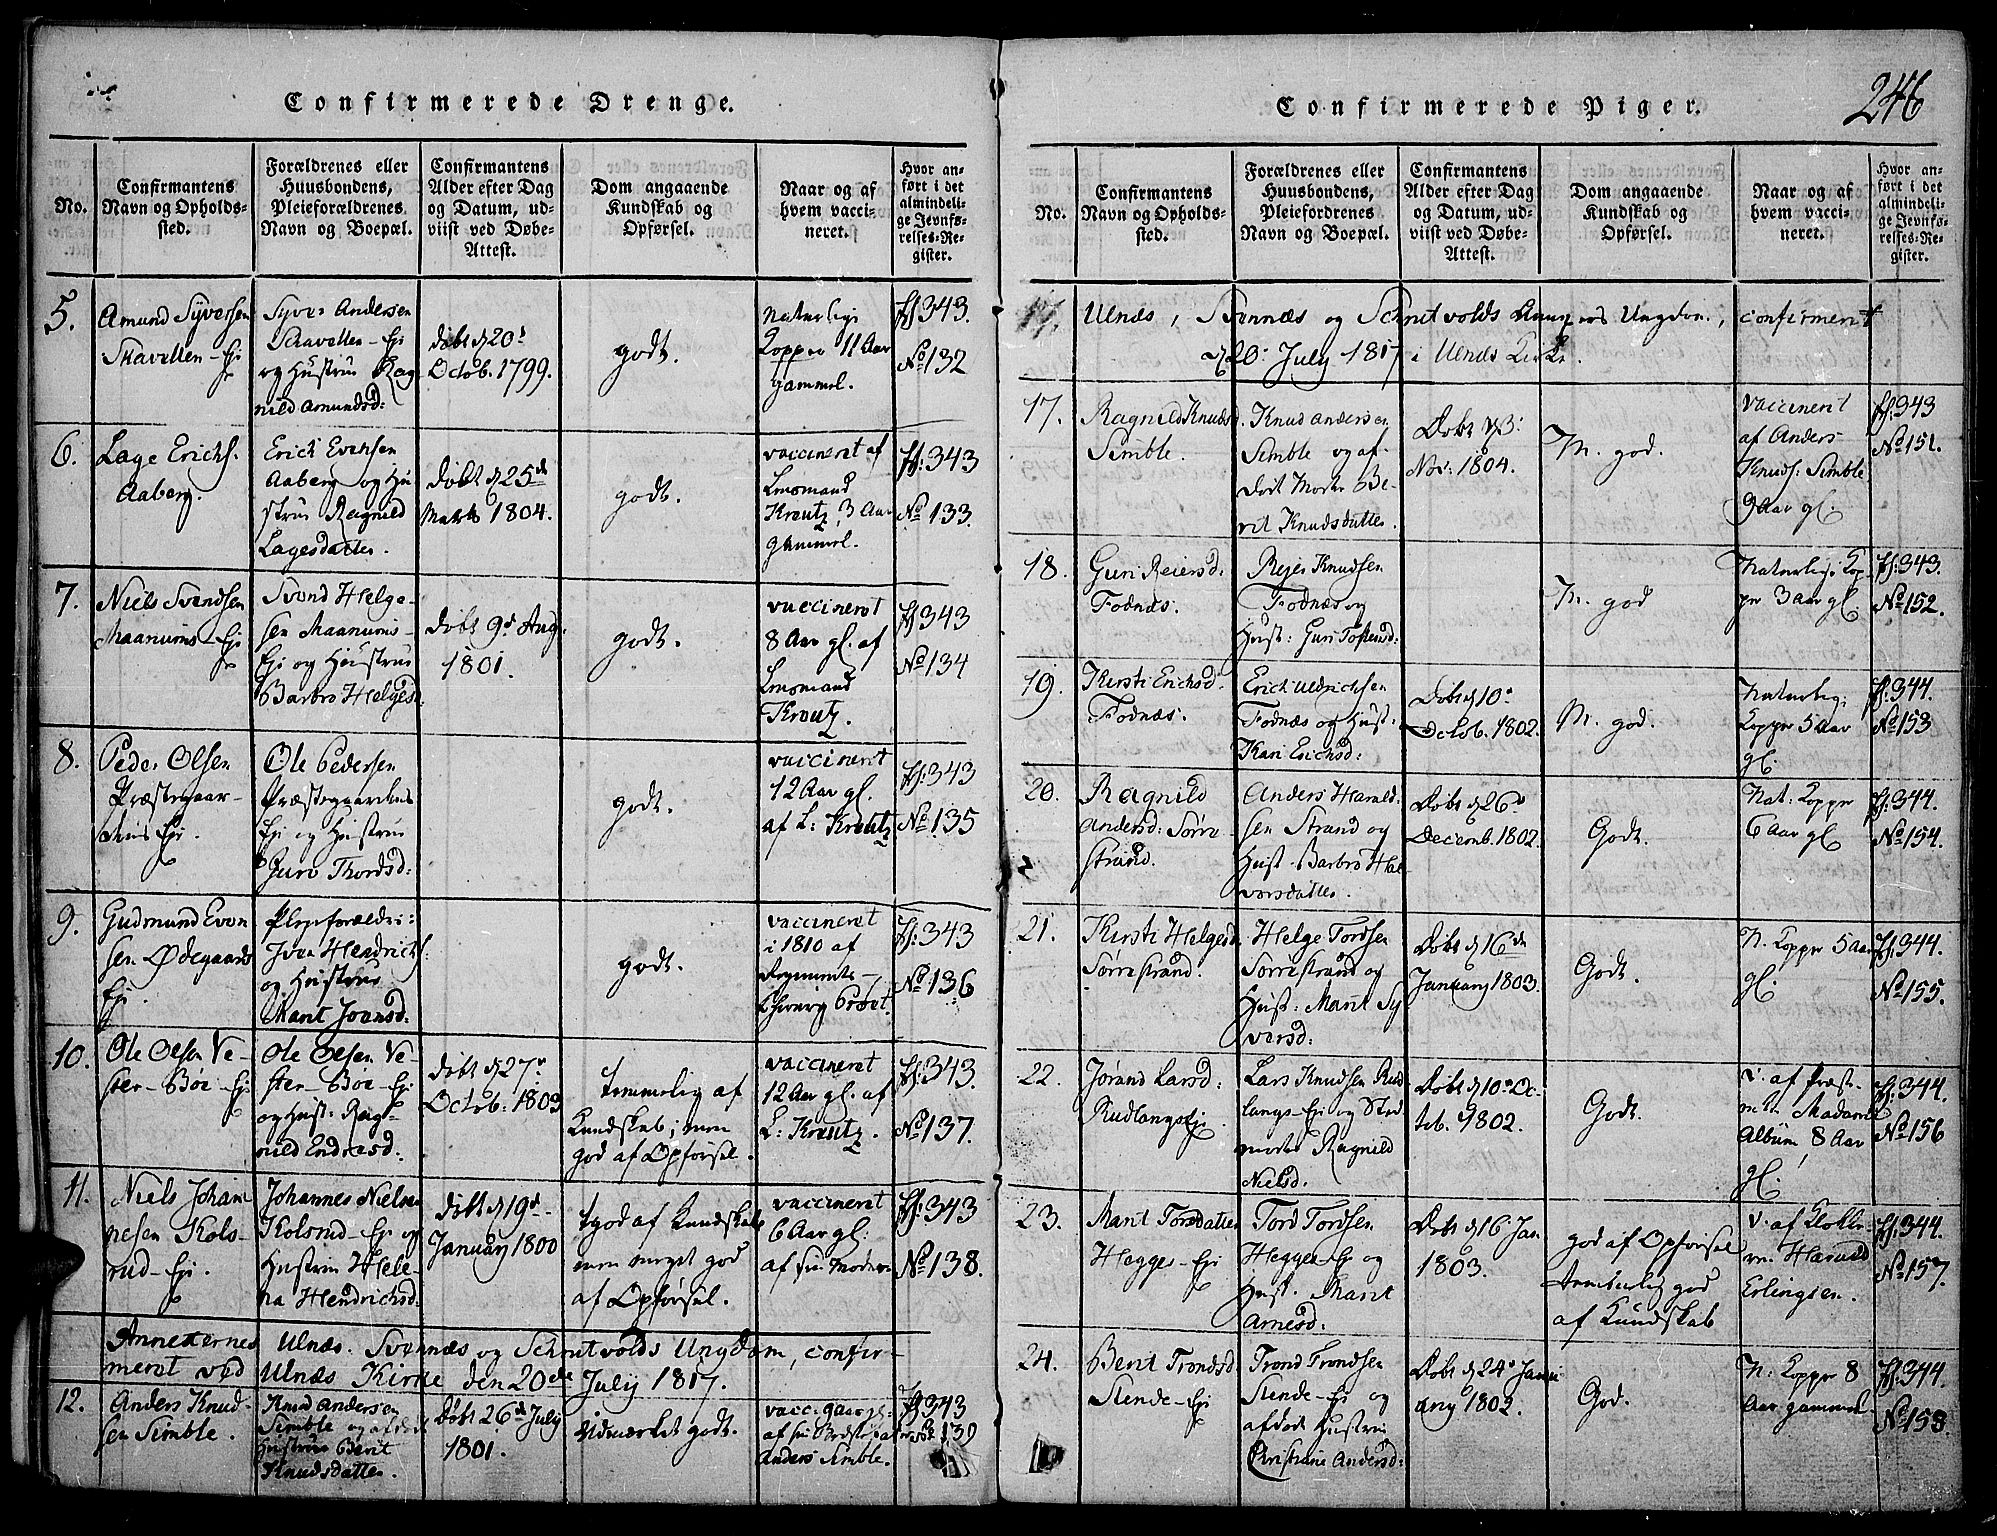 Confirmerede Drenge.
No.
Confirmantens
Navn og Opholds-
sted.
Forældrenes eller
Huusbondens,
Pleieforældrenes
Navn og Boepæl.
Confirmantens
Alder efter Dag
og Datum, ud-
viist ved Døbe-
Attest.
Dom angaaende
Kundskab og
Opførsel.
Naar og af
hvem vacci-
neret.
Hvor an-
ført i det
almindeli-
ge Jevnfø-
relses-Re-
gister.
5.
Amund Syversen
Skavellen-Ej
Syver Andersen
Skavellen-Ej
og Hustrue Rag
nild Amundsd:
døbt d 20d
Octob. 1799.
godt.
Naturlige
Kopper 11 Aar
gammel.
ff 343.
No 132
6.
Lage Erichs.
Aaberg.
Erich Evensen
Aaberg og Hu
strue Ragnild
Lagesdatter.
døbt d 25de
Marts 1804.
godt.
vaccineret af
Lnsmand
Kreutz, 3 Aar
gammel.
ff: 343
No 133.
7.
Niels Svendsen
Maanums-Ej
Svend Helge-
sen Maanums-
Ej og Hustrue
Barbro Helgesd.
døbt 9d Aug.
1801.
godt.
vaccineret
8 Aar gl. af
Lnsmand
Kreutz.
ff 343
No 134
8.
Peder Olsen
Præstegaar-
dens Ej.
Ole Pedersen
Præstegaardens
Ej og Hustrue
Guro Thordsd:
godt.
vaccineret
12 Aar gl.
af L: Kreutz
ff: 343
No 135
9.
Gudmund Even
sen Ødegaards
Ej.
Plejeforældre:
Iver Hendrichs:
og Hustrue
Marit Joensd:
godt.
vaccineret
i 1810 af
Regiments-
Chirurg Prøet.
ff: 343
No 136
10.
Ole Olsen Ve-
ster-Bøe-Ej
Ole Olsen Ve-
ster-Bøe-Ej
og Hust: Rag-
nild Endresd.
døbt d 27d
Octob. 1803
temmelig af
Kundskab; men
god af Opførsel.
vaccineret
12 Aar gl. af
L: Kreutz.
ff: 343.
No 137.
11.
Niels Johan
nesen Kols-
rud-Ej.
Johannes Nielsen
Kolsrud-Ej og
Hustrue Hele-
na Hendrichsd:
døbt d 19d
January 1800
god af Kundskab
men meget god
af Opførsel.
vaccineret
6 Aar gl:
af sin Moder
ff: 343
No 138.
Annexernes Ulnæs. Svennæs og Schrutvolds Ungdom, confir-
meret ved Ulnæs Kirke den 20de July 1817.
12.
Anders Knud-
sen Simble.
Knud Andersen
Simble og afdøde
Hustrue Berit
Knudsdatter.
Døbt 26d July
1801.
Udmærket godt.
Anders Simble.
ff 343
No 139
246
Confirmerede Piger.
No.
Confirmantens
Navn og Opholds-
sted.
Forældrenes eller
Huusbondens,
Pleiefordrenes
Navn og Boepæl.
Confirmantens
Alder efter Dag
og Datum, ud-
viist ved Døbe-
Attest.
Dom angaaende
Kundskab og
Opførsel.
Naar og af
hvem vacci-
neret.
Hvor an-
ført i det
almindeli-
ge Jevnfø-
relses-Re-
gister.
Ulnæs, Svennæs og Schrutvolds Ungdom, confirmeret
d 20: July 1817 i Ulnæs Kirke.
17.
Ragnild Knudsd.
Simble.
Knud Andersen
Simble og af-
død Moder Be-
rit Knudsdatter.
Døbt d 3:
Nov: 1804.
M. god.
vaccineret
af Anders
Knuds. Simble
9 Aar gl.
ff: 343
No 151.
18.
Guri Reiersd.
Fodnæs.
Rejer Knudsen
Fodnæs og
Hust: Guri Tostensd:
M. god
Naturlige Kop-
per 3 Aar gl.
ff: 343.
No 152.
19.
Kirsti Erichsd.
Fodnæs.
Erich Uldrichsen
Fodnæs og Hust:
Kari Erichsd:
Døbt d 10d
Octob. 1802.
M. god.
Naturlig:
Kopper 5 Aar
gl.
ff: 344.
No 153
20.
Ragnild
Andersd: Sørre
strand.
Anders Harald-
sen Strand og
Hust. Barbro Hal
vorsdatter.
Døbt d 26d
Decemb. 1802.
Godt.
Nat: Kopper
6 Aar gl.
ff: 344.
No 154.
21.
Kirsti Helgesd.
Sørrestrand.
Helge Tordsen
Sørrestrand og
Hust: Marit Sy
versd:
Døbt d 16de
January 1803.
Godt.
N. Kopper 5 Aar
gl.
ff: 344.
No 155.
22.
Jørand Larsd:
Rudlangs Ej.
Lars Knudsen Rud
langs-Ej og Sted
moder Ragnild
Nielsd.
Døbt d 10d Oc-
tob. 1802.
Godt.
v. af Præst-
Madame
Albüm, 8 Aar
gl.
ff: 344.
No 156
23.
Marit Torsdatter
Hegges-Ej
Tord Tordsen
Hegges-Ej og
Hust. Marit
Arnesd.
Døbt d 16: Jan.
1803.
god af Opførsel
temmelig god
af Kundskab
v. af Klokke-
ren Harald
Erlingsen.
ff: 344.
No 157.
24.
Berit Trondsd
Stende-Ej
Trond Trondsen
Stende-Ej og
afdøde Hustrue
Christiane Andersd:
Døbt d 24d Janu
ary 1802.
God.
N: Kopper 8
Aar gammel
ff: 344.
No 158.